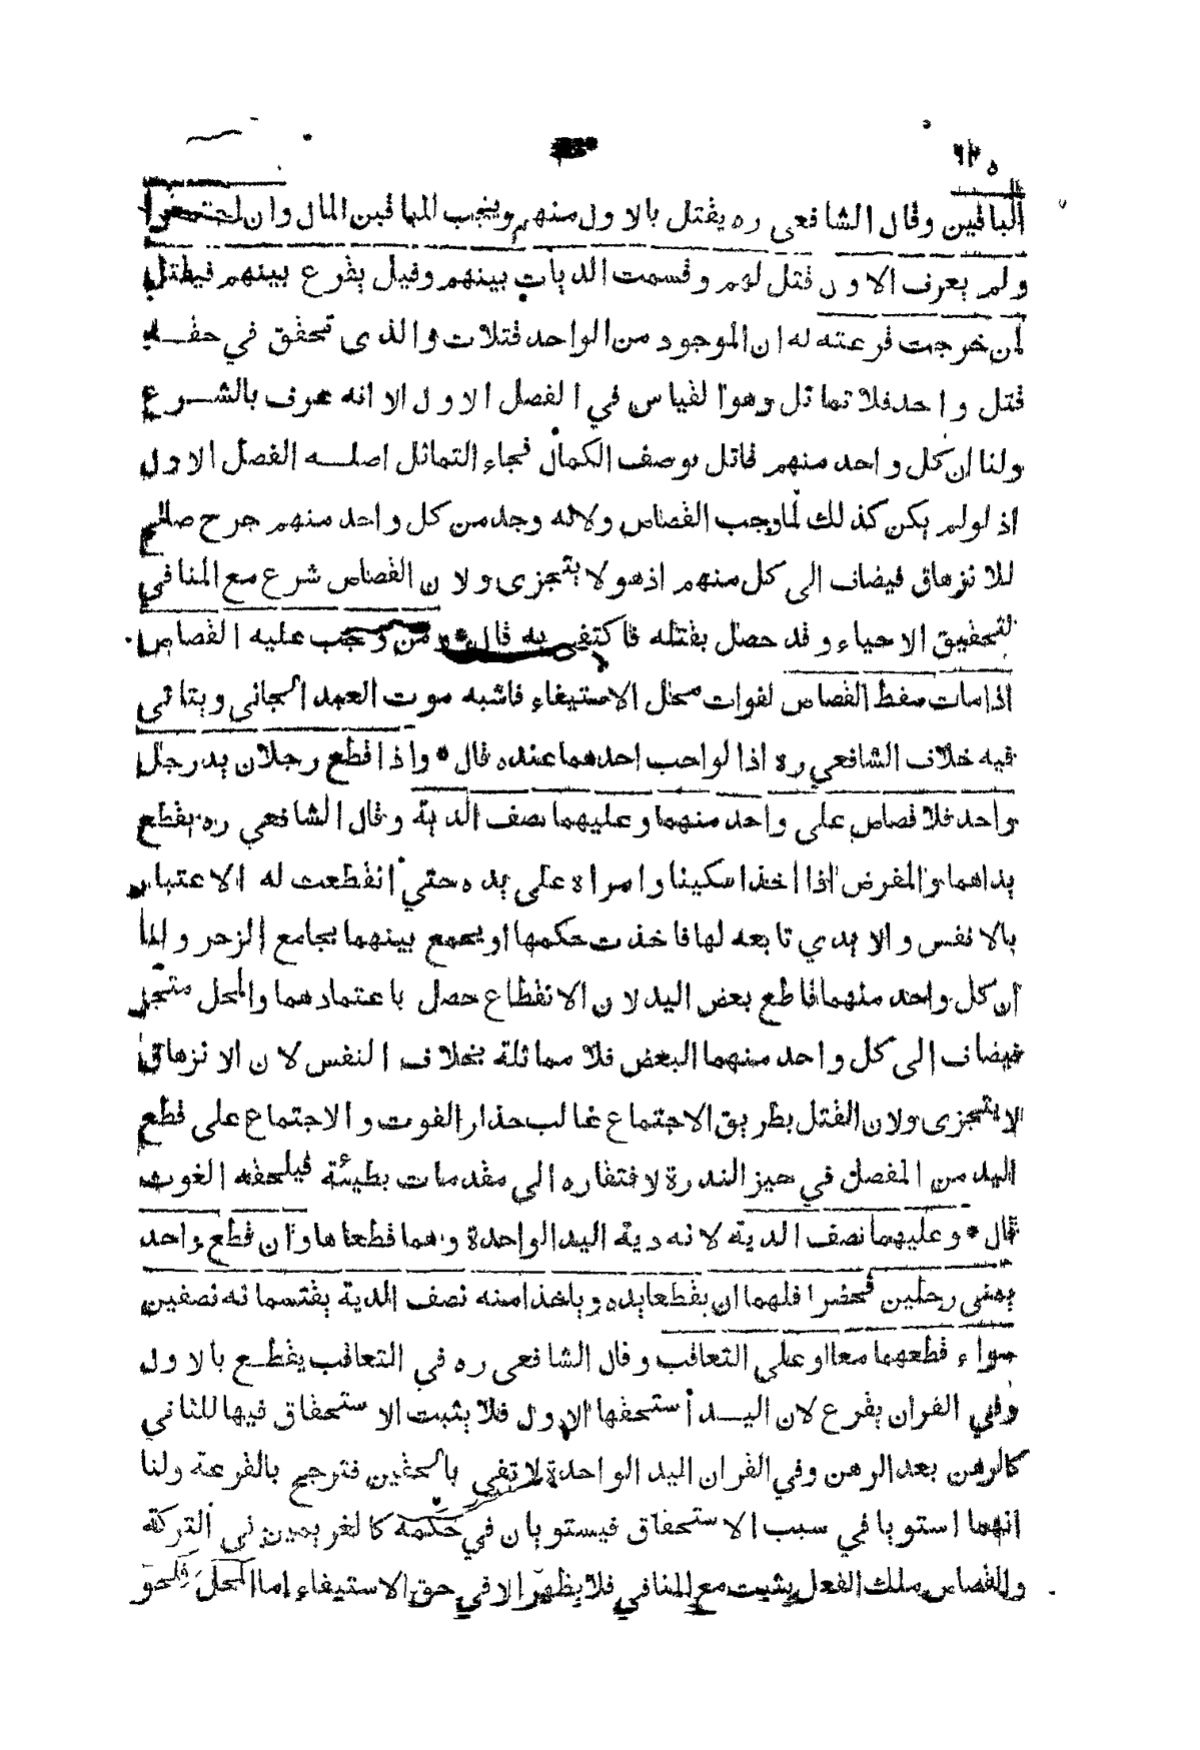 ٦٢٥
الباقين وقال الشافعى ره يقتل بالاول منهم ويجب للباقين المال وان اجتمعوا
ولم يعرف الاول قتل لهم وقسمت الديات بينهم وقيل يقرع بينهم فيقتل
لمن خرجت قرعته له ان الموجود من الواحد قتلات والذى تحقق في حقه
قتل واحد فلا تماثل وهوا لقياس في الفصل الاول الا انه عرف بالشرع
ولنا ان كل واحد منهم قاتل بوصف الكمال فجاء التماثل اصله الفصل الاول
اذ لولم يكن كذلك لما وجب القصاص ولانه وجد من كل واحد منهم جرح صالح
للانزهاق فيضاف الى كل منهم اذهو لا يتجزى ولان القصاص شرع مع المنافي
لتحقيق الاحياء وقد حصل بقتله فاكتفى به قال * ومن وجب عليه القصاص
اذا مات سقط القصاص لفوات محل الاستيفاء فاشبه موت العبد الجانى ويتاتى
فيه خلاف الشافعي ره اذا لواحب احدهما عنده قال * واذا قطع رجلان يد رجل
واحد فلا قصاص على واحد منهما وعليهما نصف الدية وقال الشافعي ره يقطع
يداهما والمفرض اذا اخذا سكينا وامراه على يده حتي انقطعت له الاعتبار
بالانفس والايدي تابعه لها فاخذت حكمها او يجمع بينهما بجامع الزجر ولنا
ان كل واحد منهما قاطع بعض اليد لان الانقطاع حصل باعتمادهما والمحل متجز
فيضاف الى كل واحد منهما البعض فلا مماثلة بخلاف النفس لان الانزهاق
لا يتجزى ولان القتل بطريق الاجتماع غالب حذار الغوث والاجتماع على قطع
اليد من المفصل في حيز الندرة لافتقاره الى مقدمات بطيئة فيلحقه الغوث
قال * وعليهما نصف الدية لانه دية اليد الواحدة وهما قطعاها وان قطع واحد
يمنى رجلين فحضرا فلهما ان يقطعا يده وياخذا منه نصف الدية يقتسمانه نصفين
سواء قطعهما معا او على التعاقب وقال الشافعى ره في التعاقب يقطع بالاول
وفي القران يقرع لان اليد استحقها الاول فلا يثبت الاستحقاق فيها للثاني
كالرهن بعد الرهن وفي القران اليد الواحدة لا تفي بالحقين فترجح بالقرعة ولنا
انهما استويا في سبب الاستحقاق فيستويان في حكمه كالغريمين في التركة
والقصاص ملك الفعل يثبت مع المنافي فلا يظهر الا في حق الاستيفاء اما المحل فلخلو